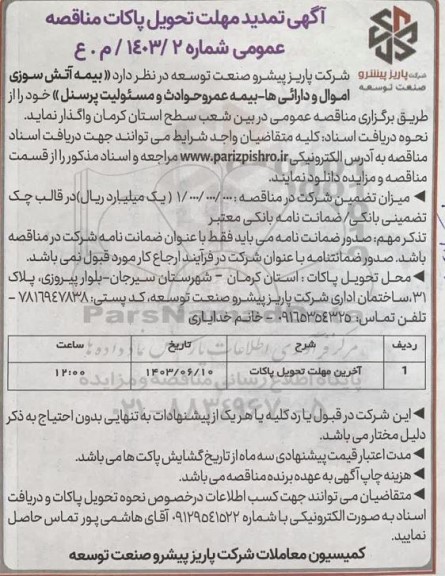 آگهی تمدید مهلت تحویل پاکات مناقصه
عمومی شماره ۲ /۱۴۰۳ / م . ع
شرکت پاریز پیشرو
صنعت توسعه
شرکت پاریز پیشرو صنعت توسعه در نظر دارد «بیمه آتش سوزی
اموال و دارائی ها-بیمه عمروحوادث و مسئولیت پرسنل» خود را از
طریق برگزاری مناقصه عمومی در بین شعب سطح استان کرمان واگذار نماید.
نحوه دریافت اسناد: کلیه متقاضیان واجد شرایط می توانند جهت دریافت اسناد
مناقصه به آدرس الکترونیکی www.parizpishro.ir مراجعه و اسناد مذکور را از قسمت
مناقصه و مزایده دانلود نمایند.
◄ میزان تضمین شرکت در مناقصه : ۱/۰۰۰/۰۰۰/۰۰۰ ( یک میلیارد ریال) در قالب چک
تضمینی بانکی/ ضمانت نامه بانکی معتبر
تذکر مهم: صدور ضمانت نامه می باید فقط با عنوان ضمانت نامه شرکت در مناقصه
باشد. صدور ضمانتنامه با عنوان شرکت در فرآیند ارجاع کار مورد قبول نمی باشد.
◄ محل تحویل پاکات : استان کرمان – شهرستان سیرجان-بلوار پیروزی، پلاک
۳۱،ساختمان اداری شرکت پاریز پیشرو صنعت توسعه،کد پستی: ۷۸۱۶۹۴۷۸۳۸ –
تلفن تماس: ۰۹۱۶۵۳۵۴۳۲۵ - خانم خدایاری
ردیف شرح تاریخ ساعت
1 آخرین مهلت تحویل پاکات ۱۴۰۳/۰۶/۱۰ ۱۲:۰۰
◄ این شرکت در قبول یا رد کلیه یا هر یک از پیشنهادات به تنهایی بدون احتیاج به ذکر
دلیل مختار می باشد.
◄ مدت اعتبار قیمت پیشنهادی سه ماه از تاریخ گشایش پاکت ها می باشد.
◄ هزینه چاپ آگهی به عهده برنده مناقصه می باشد.
◄ متقاضیان می توانند جهت کسب اطلاعات درخصوص نحوه تحویل پاکات و دریافت
اسناد به صورت الکترونیکی با شماره ۰۹۱۲۹۵۴۱۵۲۲ آقای هاشمی پور تماس حاصل
نمایید.
کمیسیون معاملات شرکت پاریز پیشرو صنعت توسعه